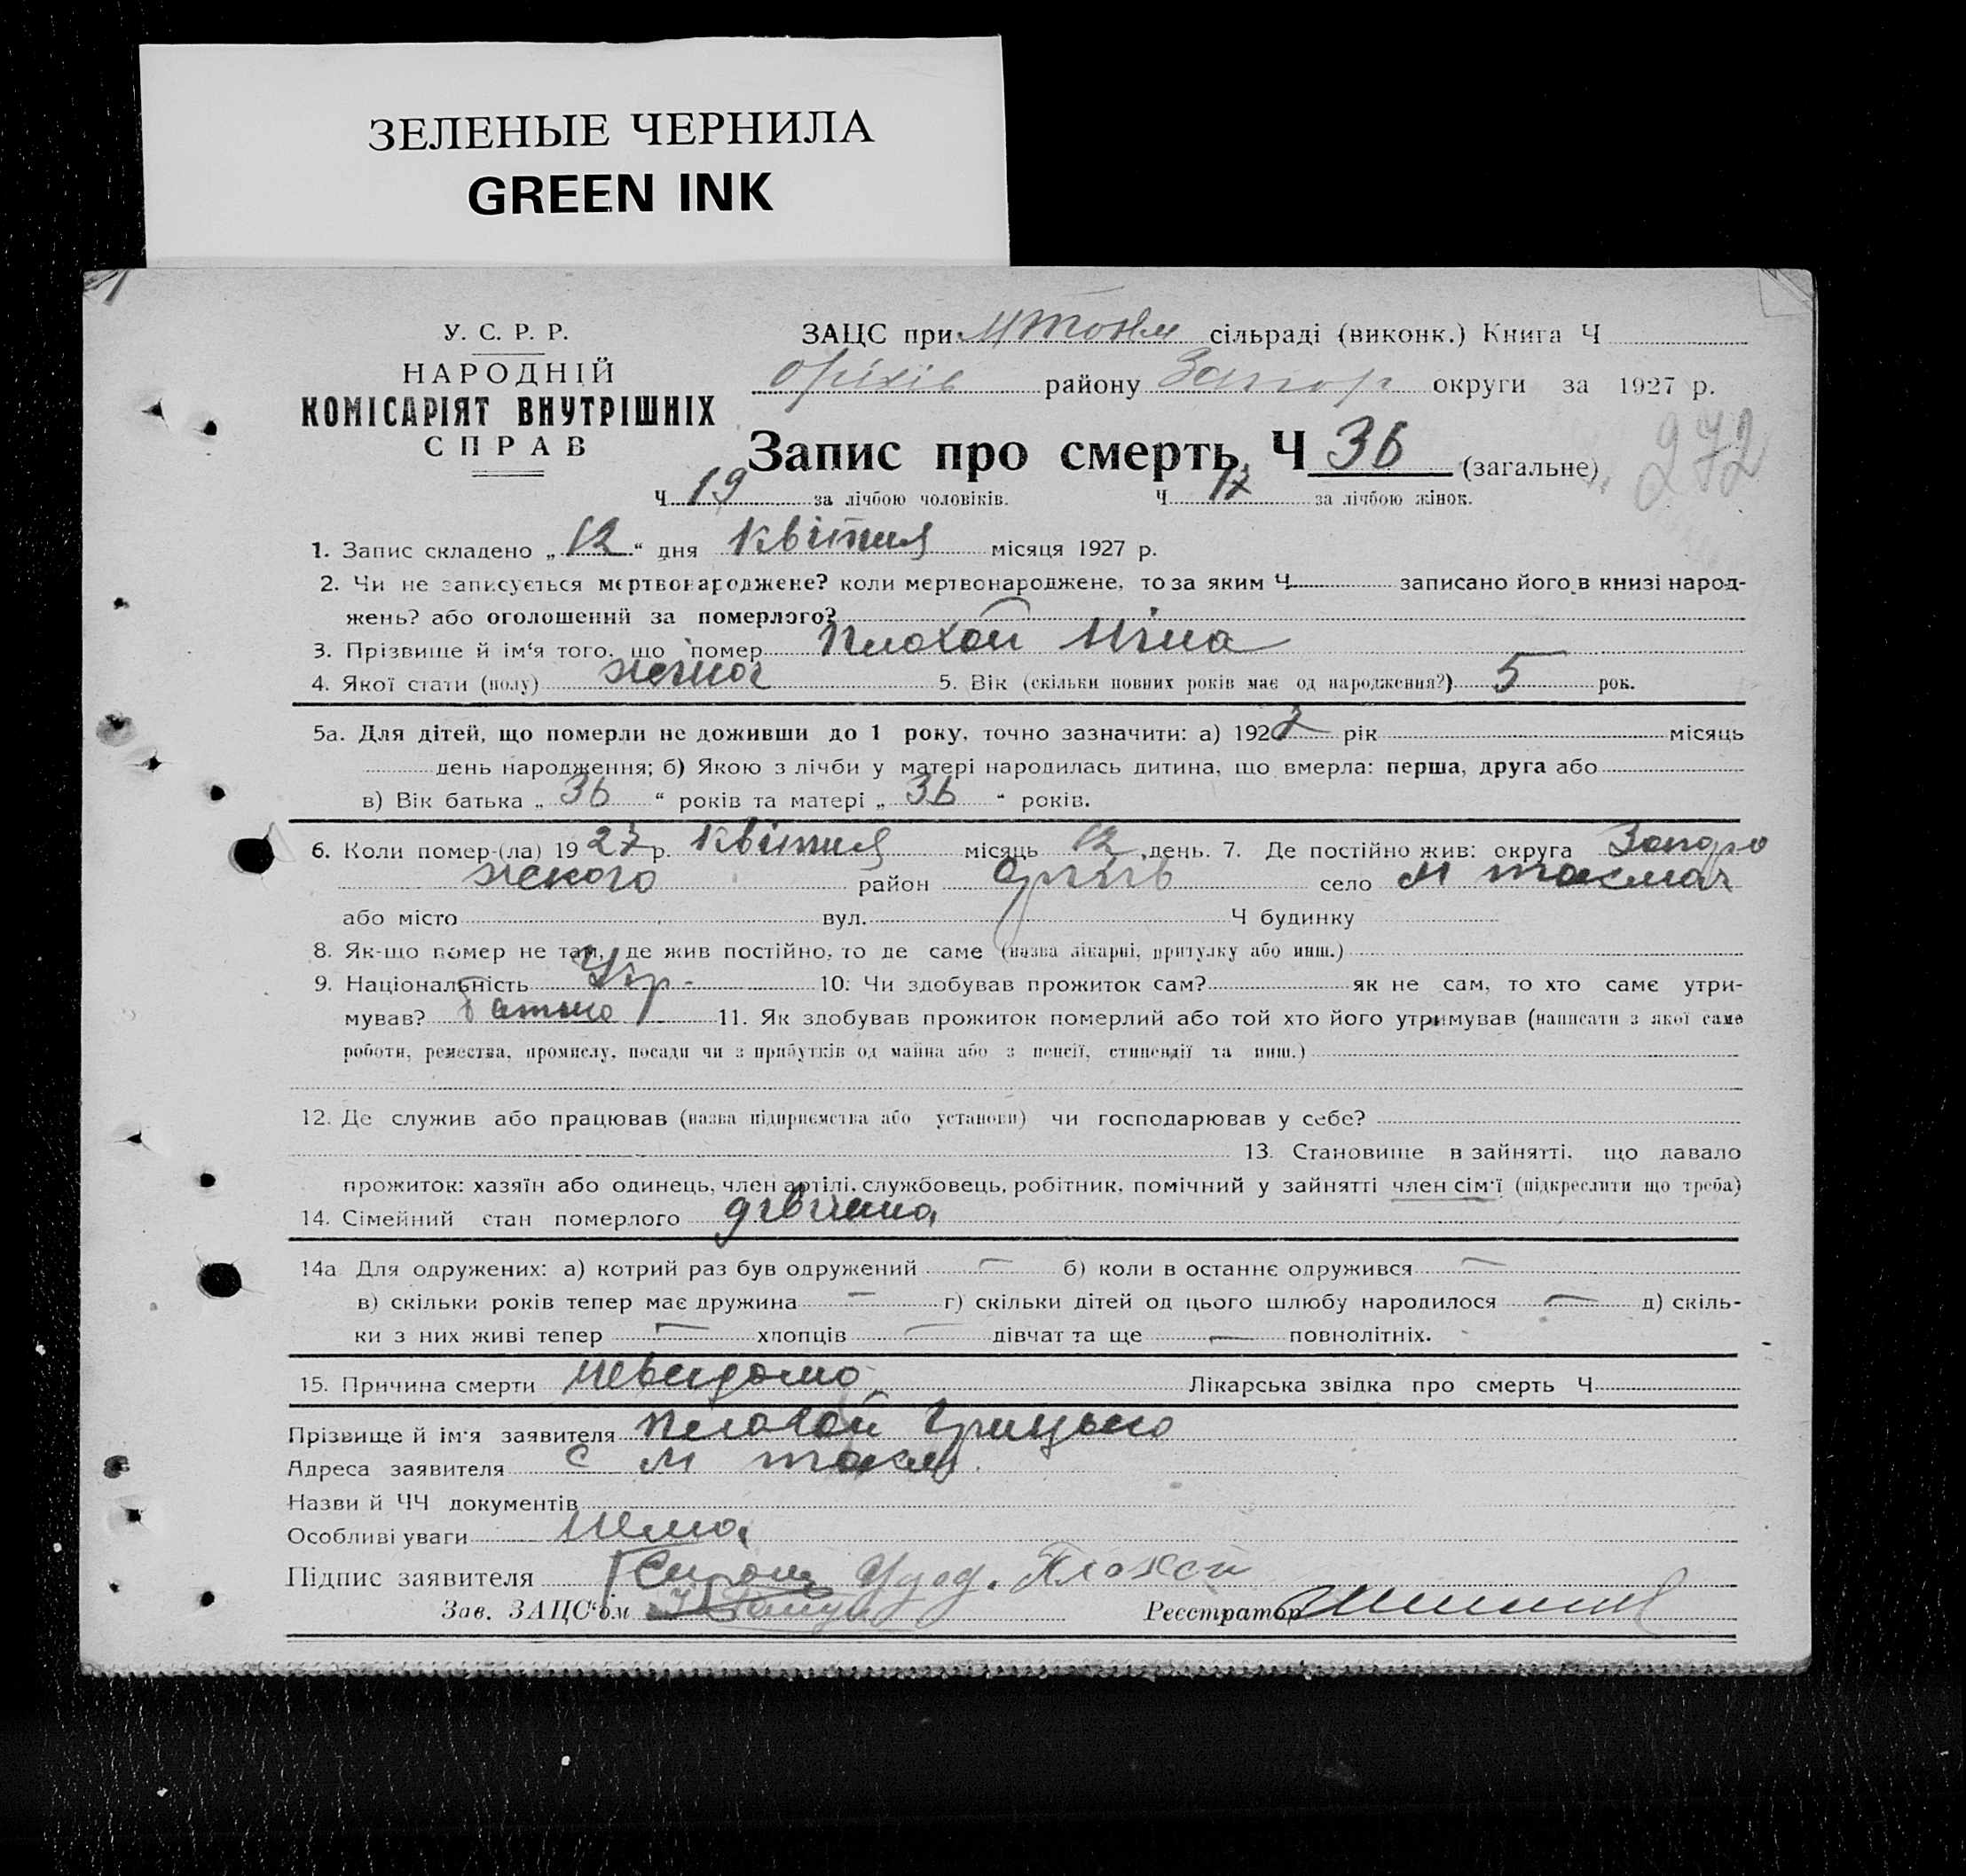 ЗЕЛЕНЫЕ ЧЕРНИЛА
GREEN INK
У. С. Р. Р.
НАРОДНІЙ
КОМІСАРІЯТ ВНУТРІШНІХ
СПРАВ
ЗАЦС при сільраді (виконк.) Книга Ч
Оріхів району Запор округи за 1927 р.
Запис про смерть Ч 36 (загальне)
272
Ч 19 за лічбою чоловіків. Ч 17 за лічбою жінок.
1. Запис складено „12“ дня квітня місяця 1927 р.
2. Чи не записується мертвонароджене? коли мертвонароджене, то за яким Ч записано його в книзі народ-
жень? або оголошений за померлого?
3. Прізвище й ім‘я того, що помер Плохой Ніна
4. Якої стати (полу) жіноча 5. Вік (скільки повних років має од народження?) 5 рок.
5а. Для дітей, що померли не доживши до 1 року, точно зазначити: а) 1922 рік місяць
день народження; б) Якою з лічби у матері народилась дитина, що вмерла: перша, друга або
в) Вік батька „36“ років та матері „36“ років.
6. Коли помер-(ла) 1927 р. квітня місяць 12 день. 7. Де постійно жив: округа Запоро
жского район Оріхів село М токмач
або місто вул. Ч будинку
8. Як-що помер не там, де жив постійно, то де саме (назва лікарні, притулку або инш.)
9. Національність Укр- 10. Чи здобував прожиток сам? як не сам, то хто саме утри-
мував? батько 11. Як здобував прожиток померлий або той хто його утримував (написати з якої саме
роботи, ремества, промислу, посади чи з прибутків од майна або з пенсії, стипендії та инш.)
12. Де служив або працював (назва підприємства або установи) чи господарював у себе?
13. Становище в зайнятті, що давало
прожиток: хазяїн або одинець, член артілі, службовець, робітник, помічний у зайнятті член сім‘ї (підкреслити що треба)
14. Сімейний стан померлого дівчина
14а Для одружених: а) котрий раз був одружений — б) коли в останнє одружився —
в) скільки років тепер має дружина — г) скільки дітей од цього шлюбу народилося — д) скіль-
ки з них живі тепер — хлопців — дівчат та ще — повнолітніх.
15. Причина смерти невидомо Лікарська звідка про смерть Ч
Прізвище й ім‘я заявителя Плохой Грицько
Адреса заявителя с М токм.
Назви й ЧЧ документів
Особливі уваги Нема
Підпис заявителя Плохой
Зав. ЗАЦС‘ом Реєстратор